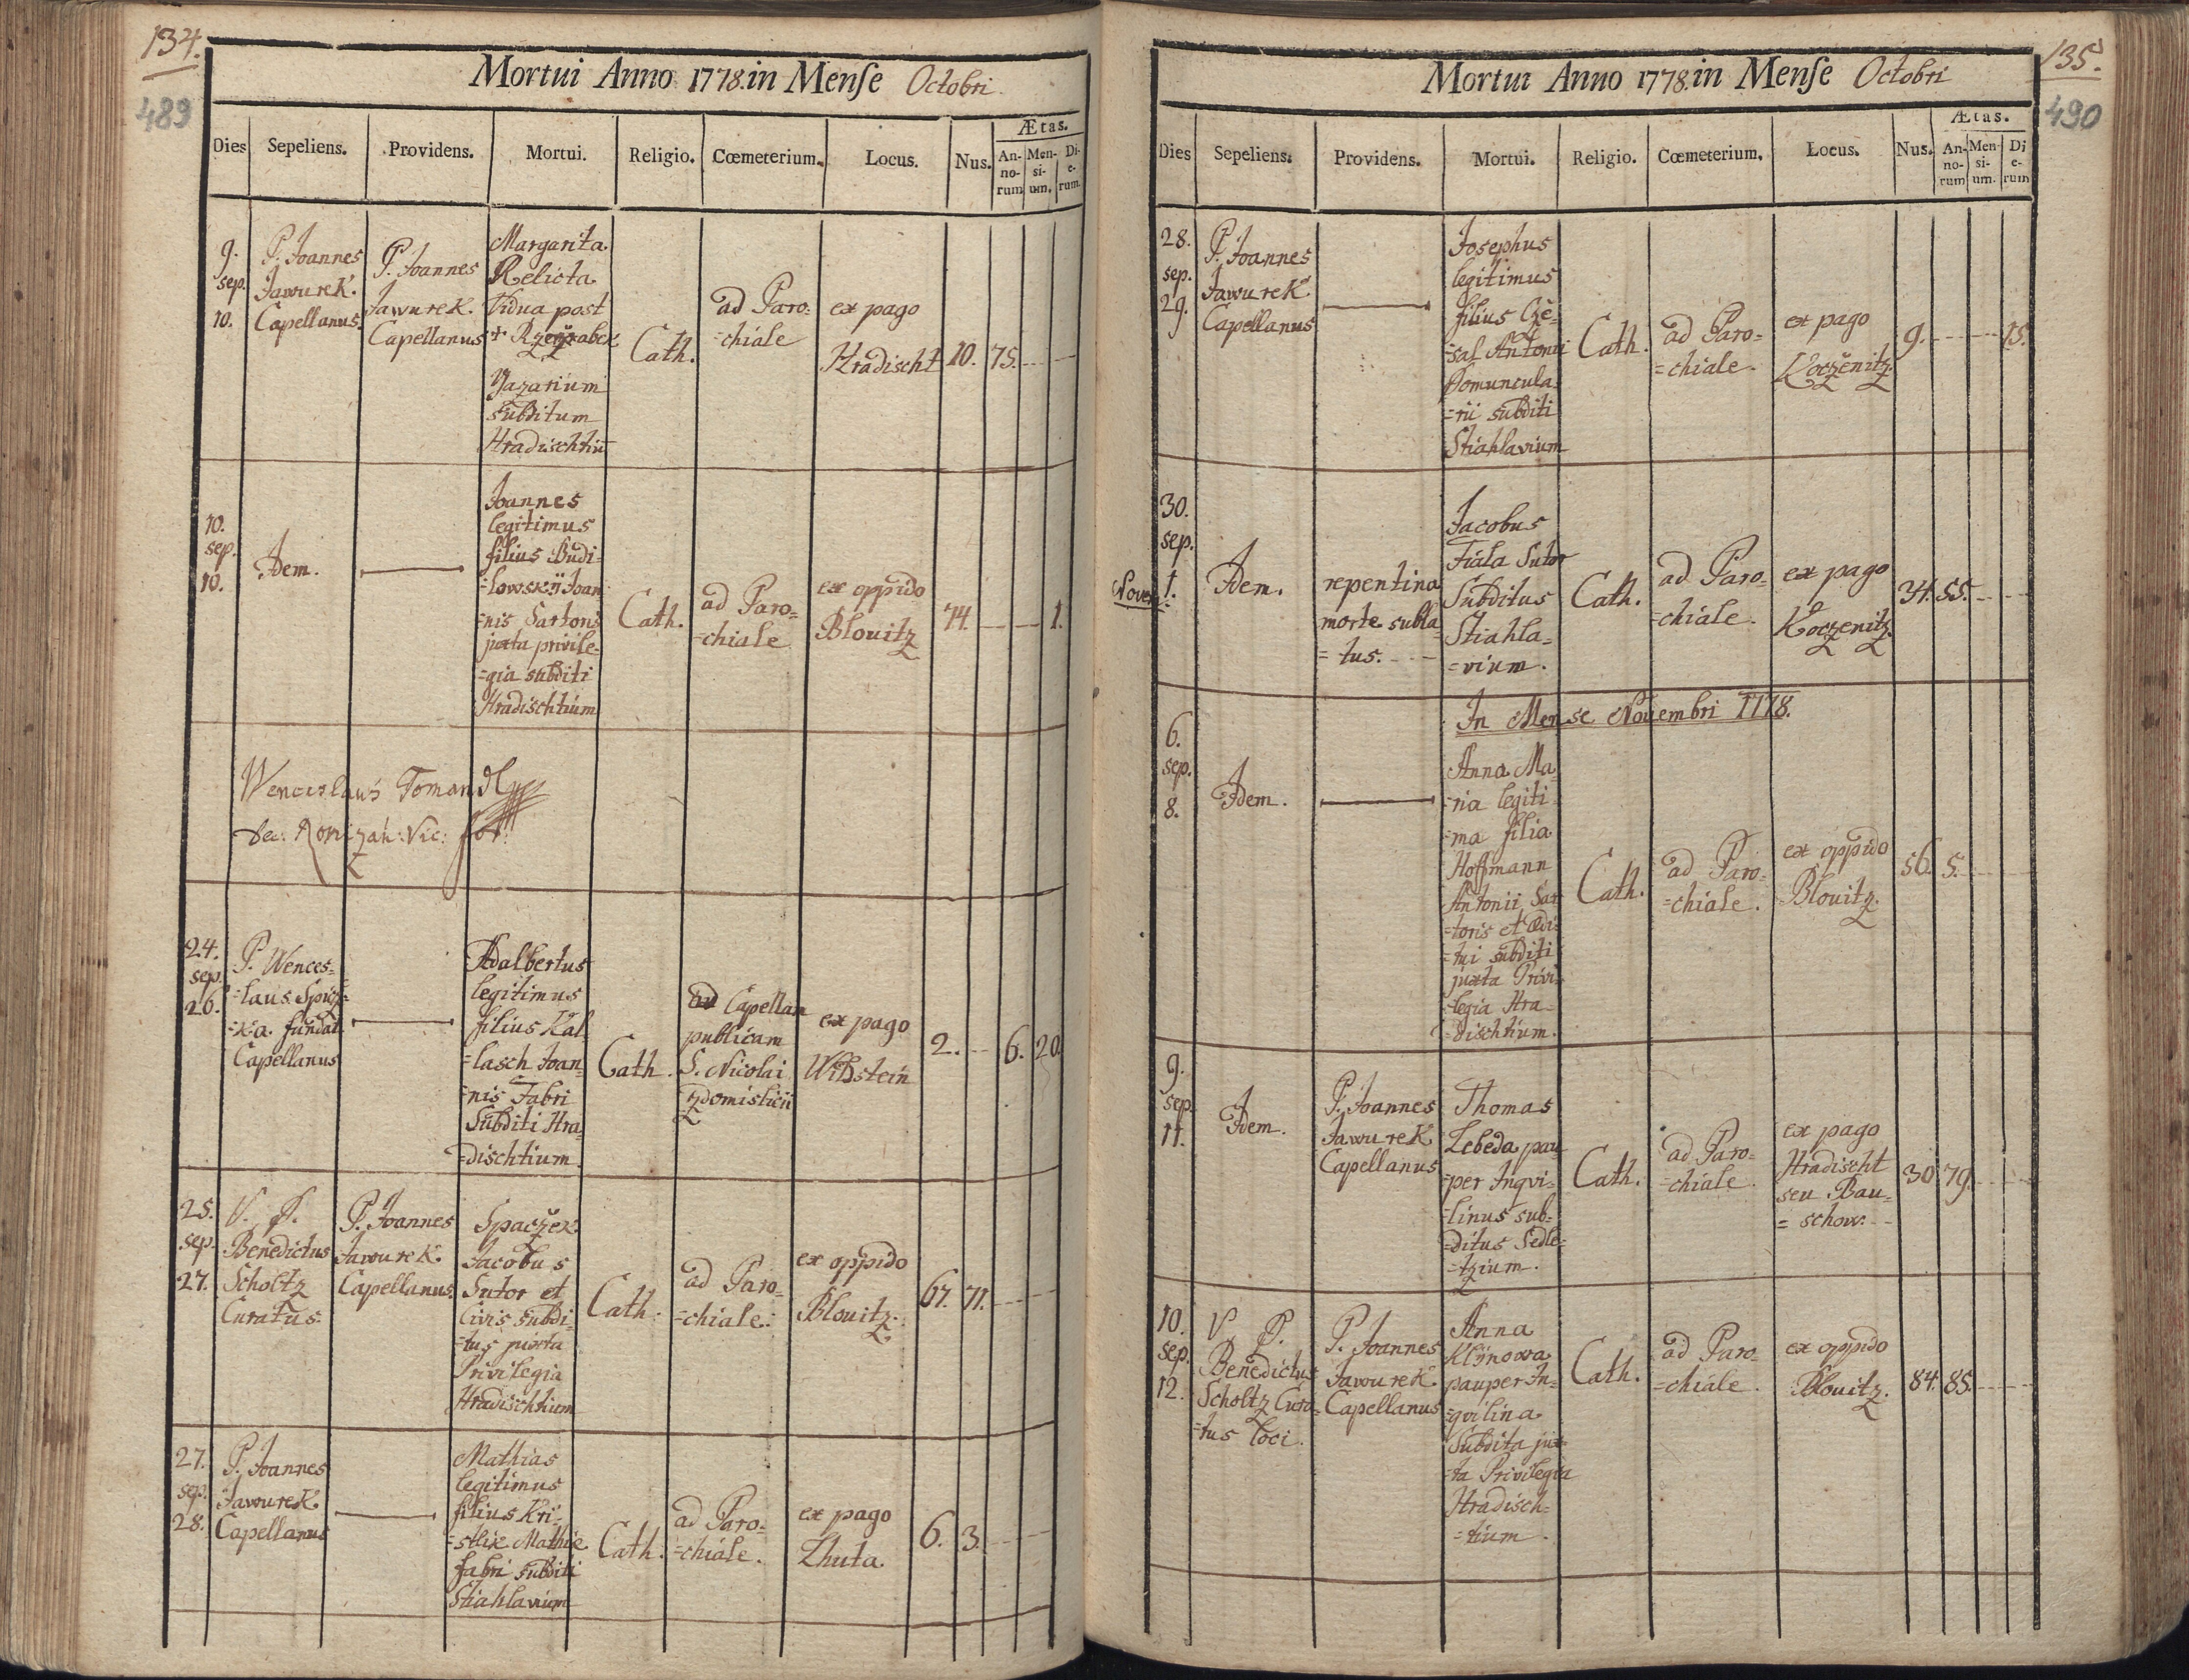 134.
489
Mortui Anno 1778. in Mense Octobri.
Dies Sepeliens. Providens. Mortui. Religio. Cœmeterium. Locus. Nus. Ætas.
An-
no-
rum
Men-
si-
um.
Di-
e-
rum.
9.
sep.
10.
P. Joannes
Jawurek.
Capellanus.
P. Joannes
Jawurek.
Capellanus
Margarita
Relicta
Vidua post
Subditum
Hradischtiū
Cath.
ad Paro=
=chiale
ex pago
Hradischt
10. 75.
10.
sep.
10.
Idem.
Joannes
legitimus
filius Budi-
=lowskÿ Joan
=nis Sartoris
juxta privile-
=gia subditi
Hradischtium
Cath.
ad Paro=
=chiale
ex oppido
Blouitz
74. 1.
Wenceslaus Tomandl
24.
sep.
26.
P. Wences=
=laus Spicz=
=ka. fundat.
Capellanus
Adalbertus
legitimus
filius Kal
=lasch Joan=
=nis Fabri
Subditi Hra=
=dischtium
Cath.
ad Capellam
publicam
S. Nicolai
Zdomislicii
ex pago
Wildstein
2. 6. 20.
25.
sep.
27.
V. P.
Benedictus
Scholtz
Curatus.
P. Joannes
Jawurek.
Capellanus.
Spaczek
Jacobus
Sutor et
Civis subdi=
=tus juxta
Privilegia
Hradischtium
Cath.
ad Paro=
=chiale.
ex oppido
Blouitz.
67. 71.
27.
sep.
28.
P. Joannes
Jawurek.
Capellanus
Mathias
legitimus
filius Kri-
=stlik Mathiæ
fabri subditi
Stiahlavium
Cath.
ad Paro=
=chiale.
ex pago
Lhuta.
6. 3.
135.
490
Mortui Anno 1778. in Mense Octobri
Dies Sepeliens. Providens. Mortui. Religio. Cœmeterium. Locus. Nus. Ætas.
An-
no-
rum
Men-
si-
um.
Di
e-
rum
28.
sep.
29.
P. Joannes
Jawurek
Capellanus
Josephus
legitimus
filius Cže-
=sal Antonii
Domuncula=
=rii subditi
Stiahlavium
Cath.
ad Paro=
=chiale.
ex pago
Koczenitz.
9. 15.
30.
sep.
Novem. 1.
Idem.
repentina
morte subla=
=tus.
Jacobus
Fiala Sutor
Subditus
Stiahla=
=vium.
Cath.
ad Paro=
=chiale.
ex pago
Koczenitz.
34. 55.
In Mense Novembri 1778.
6.
sep.
8.
Idem.
Anna Ma=
=ria legiti=
=ma filia
Hoffmann
Antonii Sar
=toris et Ædi=
=tui subditi
juxta Privi=
=legia Hra=
=dischtium.
Cath.
ad Paro=
=chiale.
ex oppido
Blouitz.
56. 5.
9.
sep.
11.
Idem.
P. Joannes
Jawurek
Capellanus
Thomas
Lebeda pau=
=per Inqvi=
=linus sub=
=ditus Sedle=
=tzium.
Cath.
ad Paro=
=chiale.
ex pago
Hradischt
seu Bau=
=schow.
30 79.
10.
sep.
12.
V. P.
Benedictus
Scholtz Cura=
=tus loci.
P. Joannes
Jawurek.
Capellanus
Anna
Klÿnowa
pauper In=
=qvilina
Subdita jux=
=ta Privilegia
Hradisch=
=tium.
Cath.
ad Paro=
=chiale.
ex oppido
Blouitz.
84. 85.